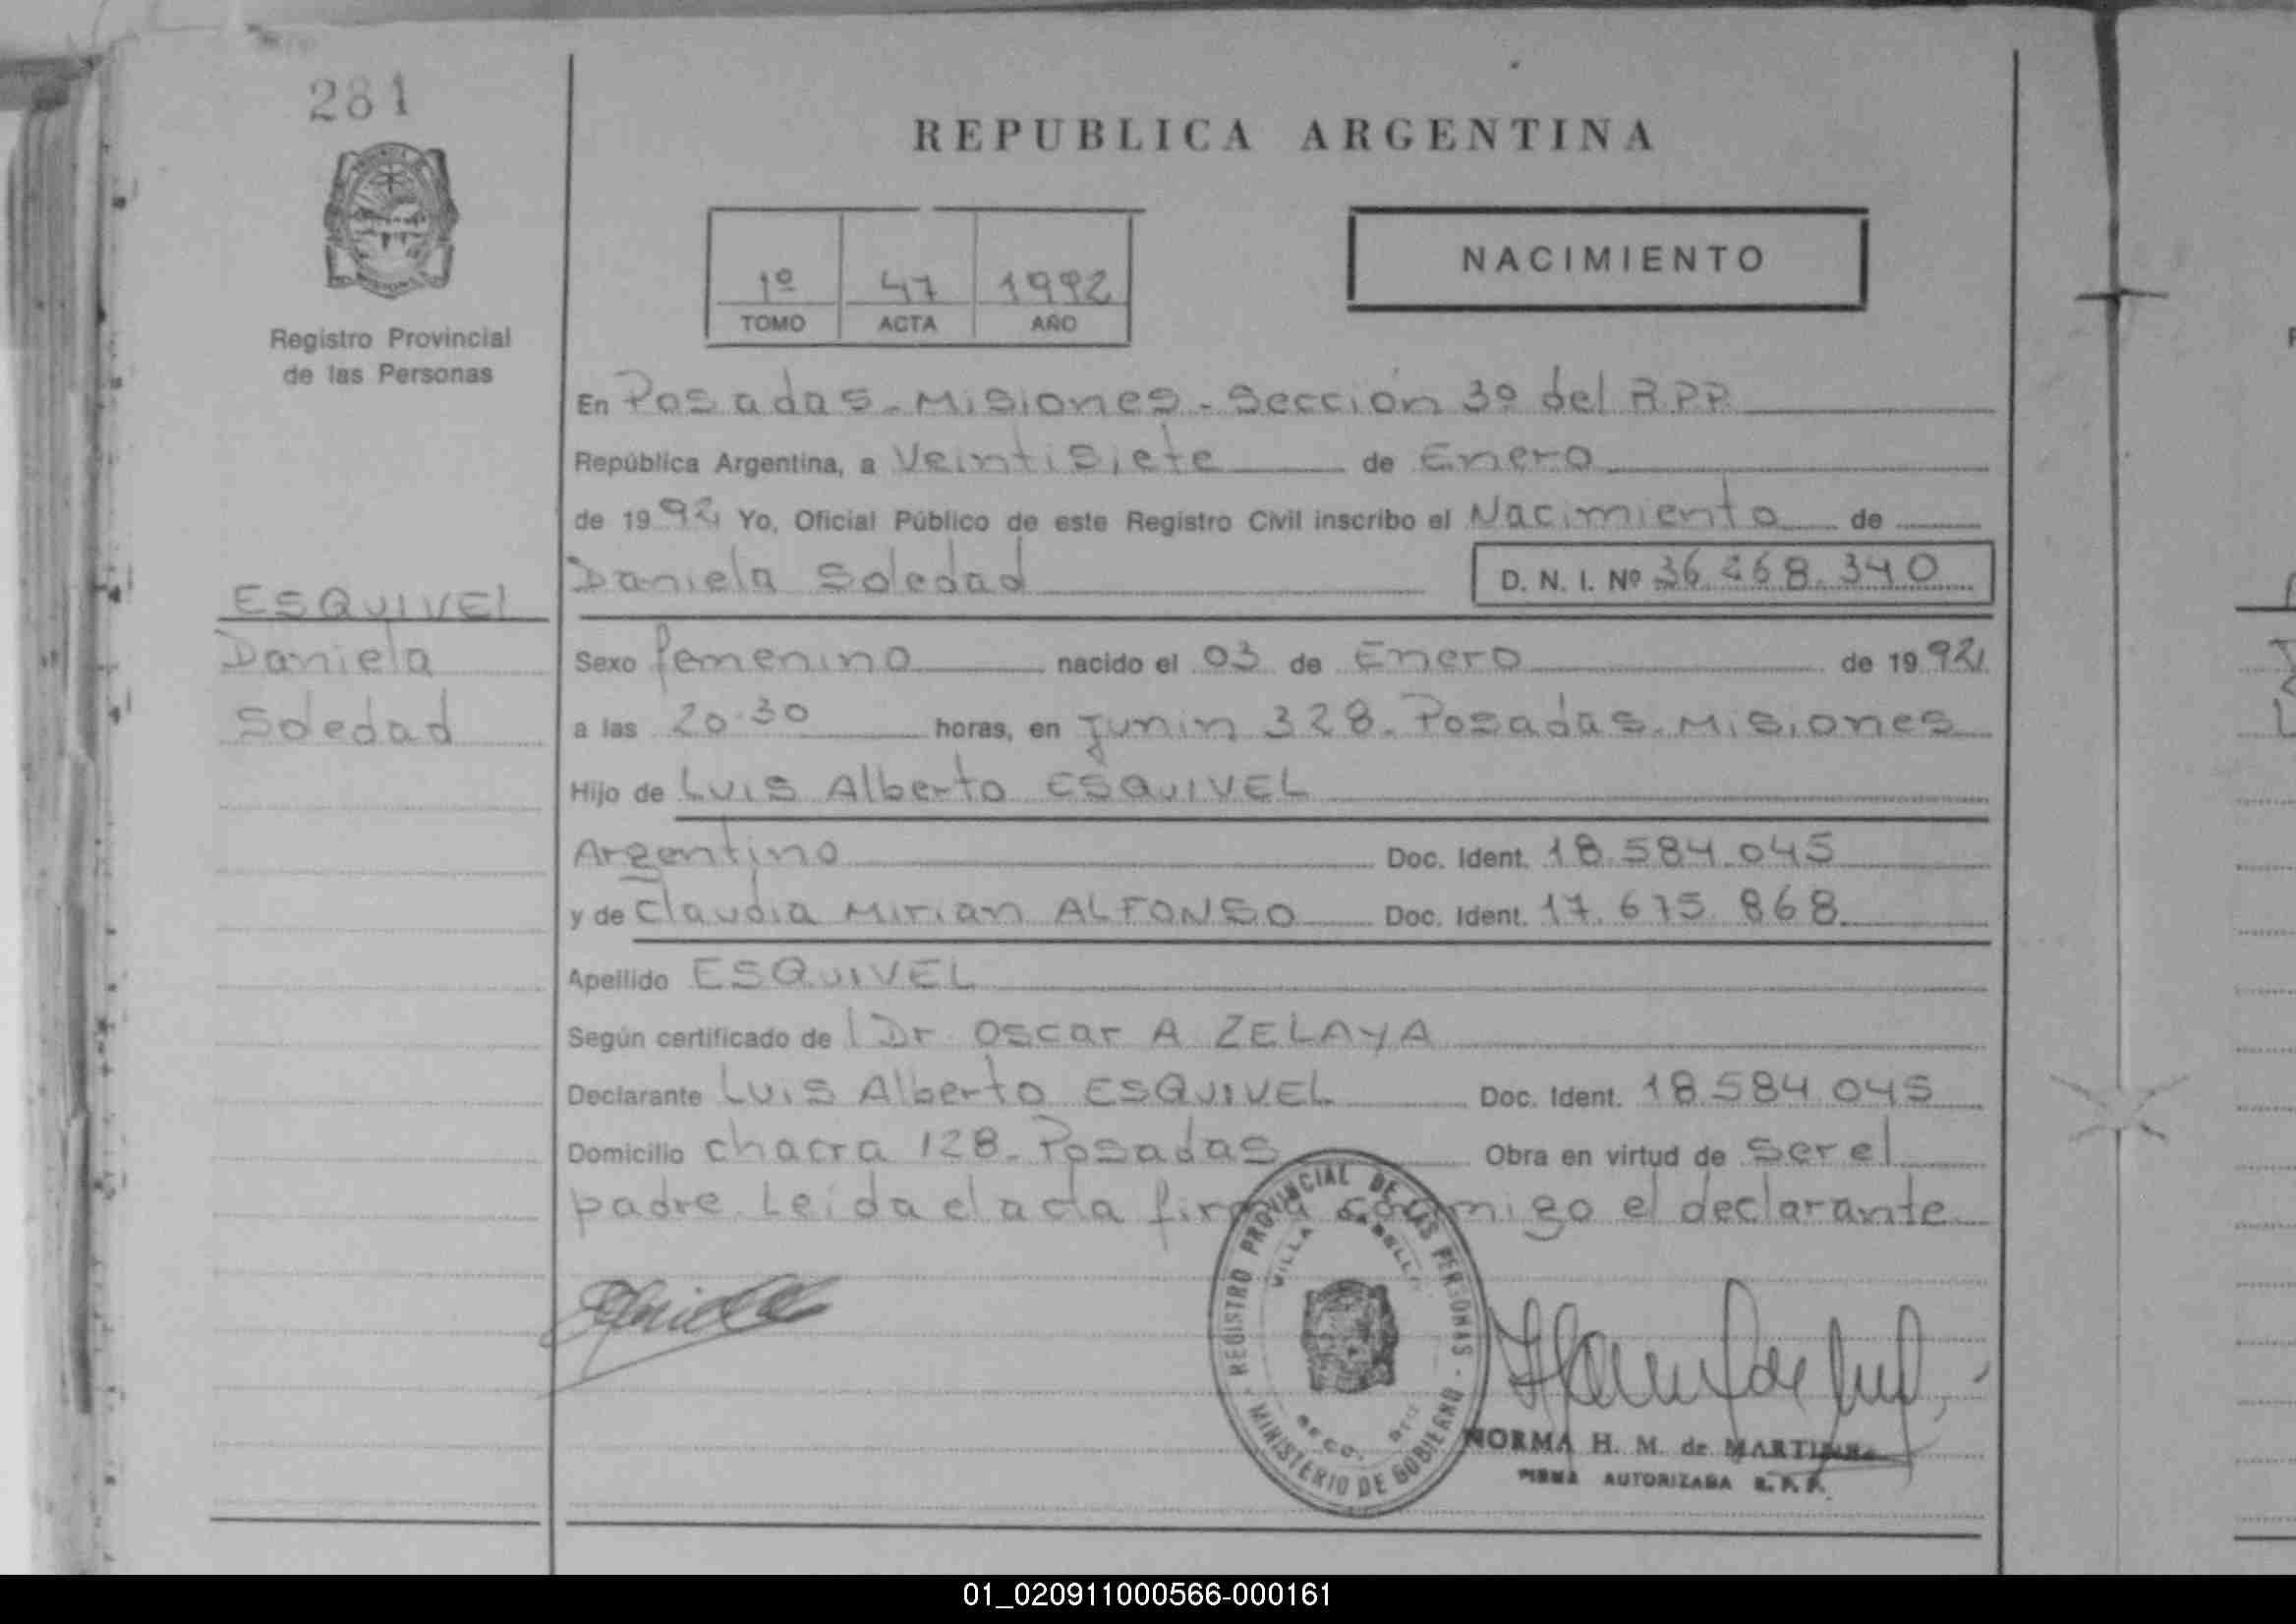 281
REPUBLICA ARGENTINA
NACIMIENTO
1º 47 1992
TOMO ACTA AÑO
Registro Provincial
de las Personas
En Posadas - Misiones - Sección 3º del R.P.P.
República Argentina, a Veintisiete de Enero
de 1992 Yo, Oficial Público de este Registro Civil inscribo el Nacimiento de
Daniela Soledad D. N. I. Nº 36.268.340
ESQUIVEL
Daniela
Soledad
Sexo femenino nacido el 03 de Enero de 1992
a las 20.30 horas, en Junin 328. Posadas. Misiones
Hijo de Luis Alberto ESQUIVEL
Argentino Doc. Ident. 18.584.045
y de Claudia Mirian ALFONSO Doc. Ident. 17.675.868
Apellido ESQUIVEL
Según certificado de l Dr. Oscar A ZELAYA
Declarante Luis Alberto ESQUIVEL Doc. Ident. 18.584.045
Domicilio chacra 128 - Posadas Obra en virtud de ser el
padre. Leída el acta firma conmigo el declarante
REGISTRO PROVINCIAL DE LAS PERSONAS - MINISTERIO DE GOBIERNO
VILLA
NORMA H. M. de
FIRMA AUTORIZADA R. P. P.
01_020911000566-000161